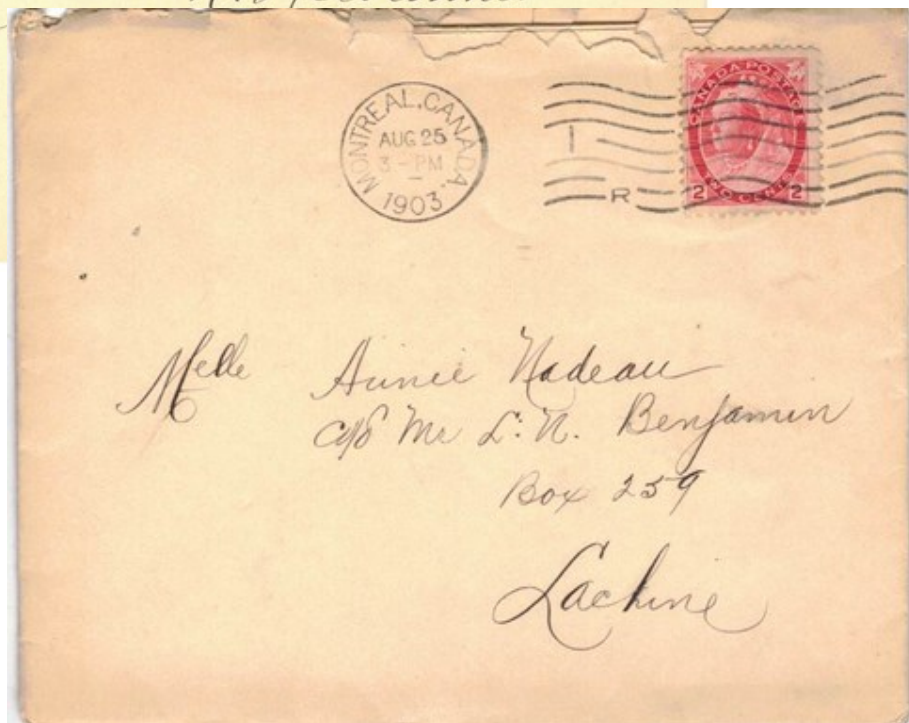 MONTREAL, CANADA.
AUG 25
3 - PM
1903
R
CANADA POSTAGE
2 TWO CENTS 2
Melle Annie Nadeau
c/o Mr L. N. Benjamin
Box 259
Lachine